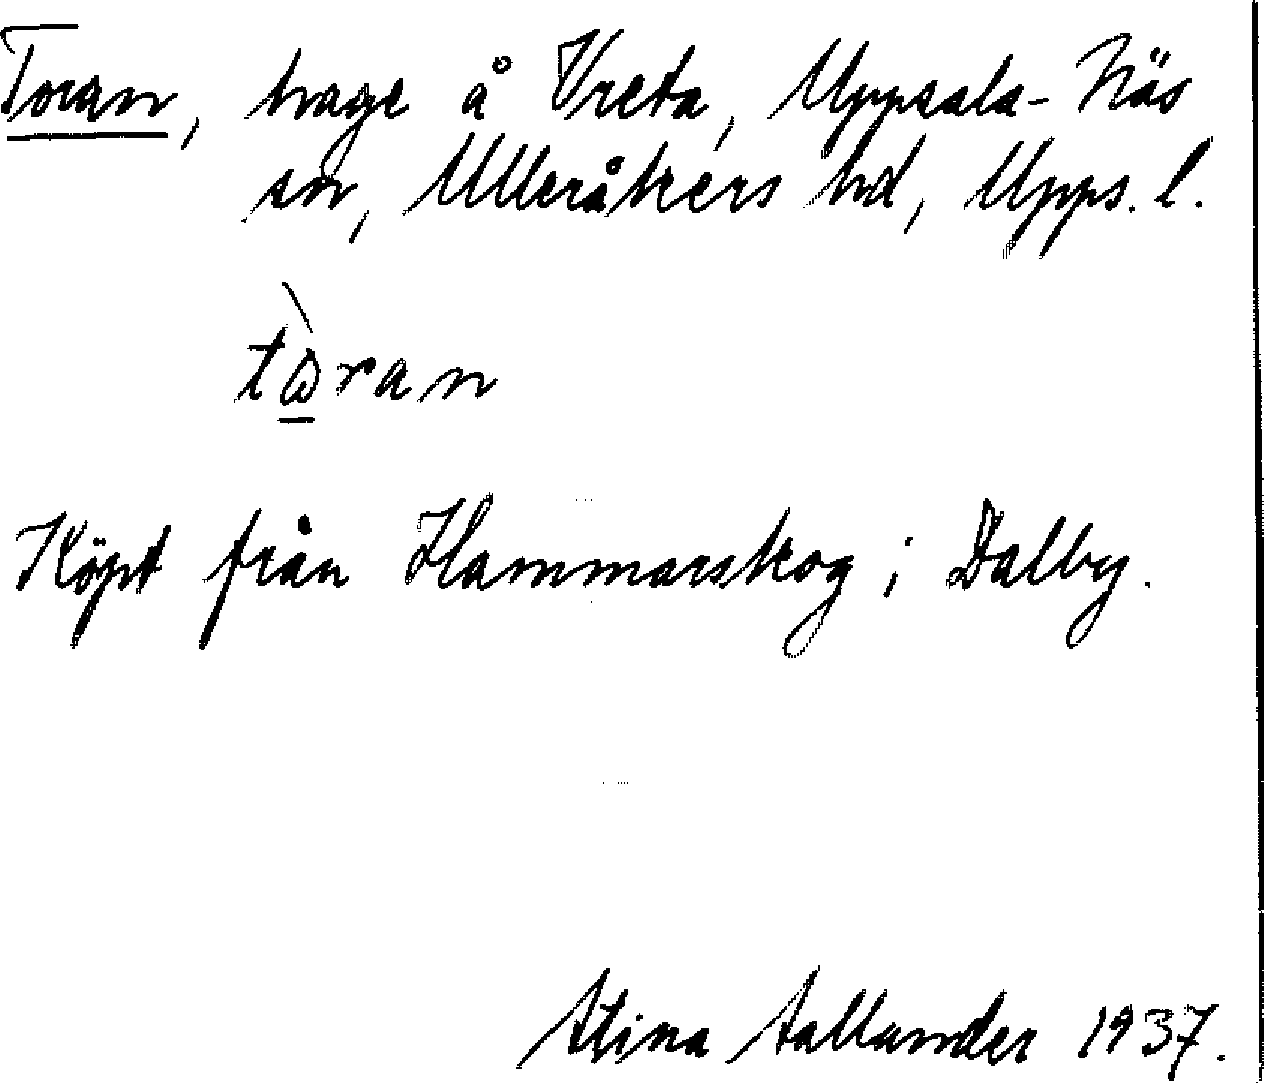 Toran, hage å Vreta, Uppsala-Näs
sn, Ulleråkers hd, Upps. l.
tⱺ̀ran
Köpt från Hammarskog i Dalby.
Stina Sallander 1937.